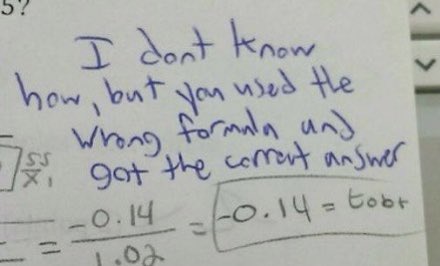 5?
I dont know
how, but you used the
wrong formula and
got the correct answer
SS
X₁
= -0.14 = -0.14 = tobt
1.02